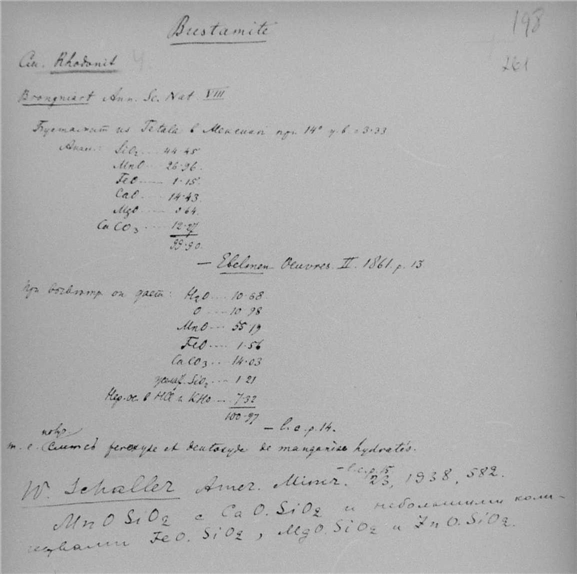 Bustamite
198
261
См. Rhodonit
Brongniart Ann. Sc. Nat. VIII
Бустамит из Tetala в Мексики при 14° у.в = 3.33
Анал: SiO₂ ---- 44.45
MnO ---- 26.96
FeO ---- 1.15
CaO ---- 14.43
MgO ---- 0.64
CaCO₃ ---- 12.27
99.90
— Ebelmen Oeuvres II. 1861. p. 13
При он дает: H₂O ---- 10.68
O ---- 10.98
MnO ---- 55.19
FeO ---- 1.56
CaCO₃ ---- 14.03
SiO₂ ---- 1.21
в HCl и KHO --- 7.32
100.97
— l. c. p. 14.
т. е. peroxyde et deutoxyde de manganèse hydratés.
— l. c. p. 15
W. Schaller Amer. Miner. 23, 1938, 582.
MnO SiO₂ с CaO. SiO₂ и небольшими коли-
чествами FeO. SiO₂, MgO. SiO₂ и ZnO. SiO₂.